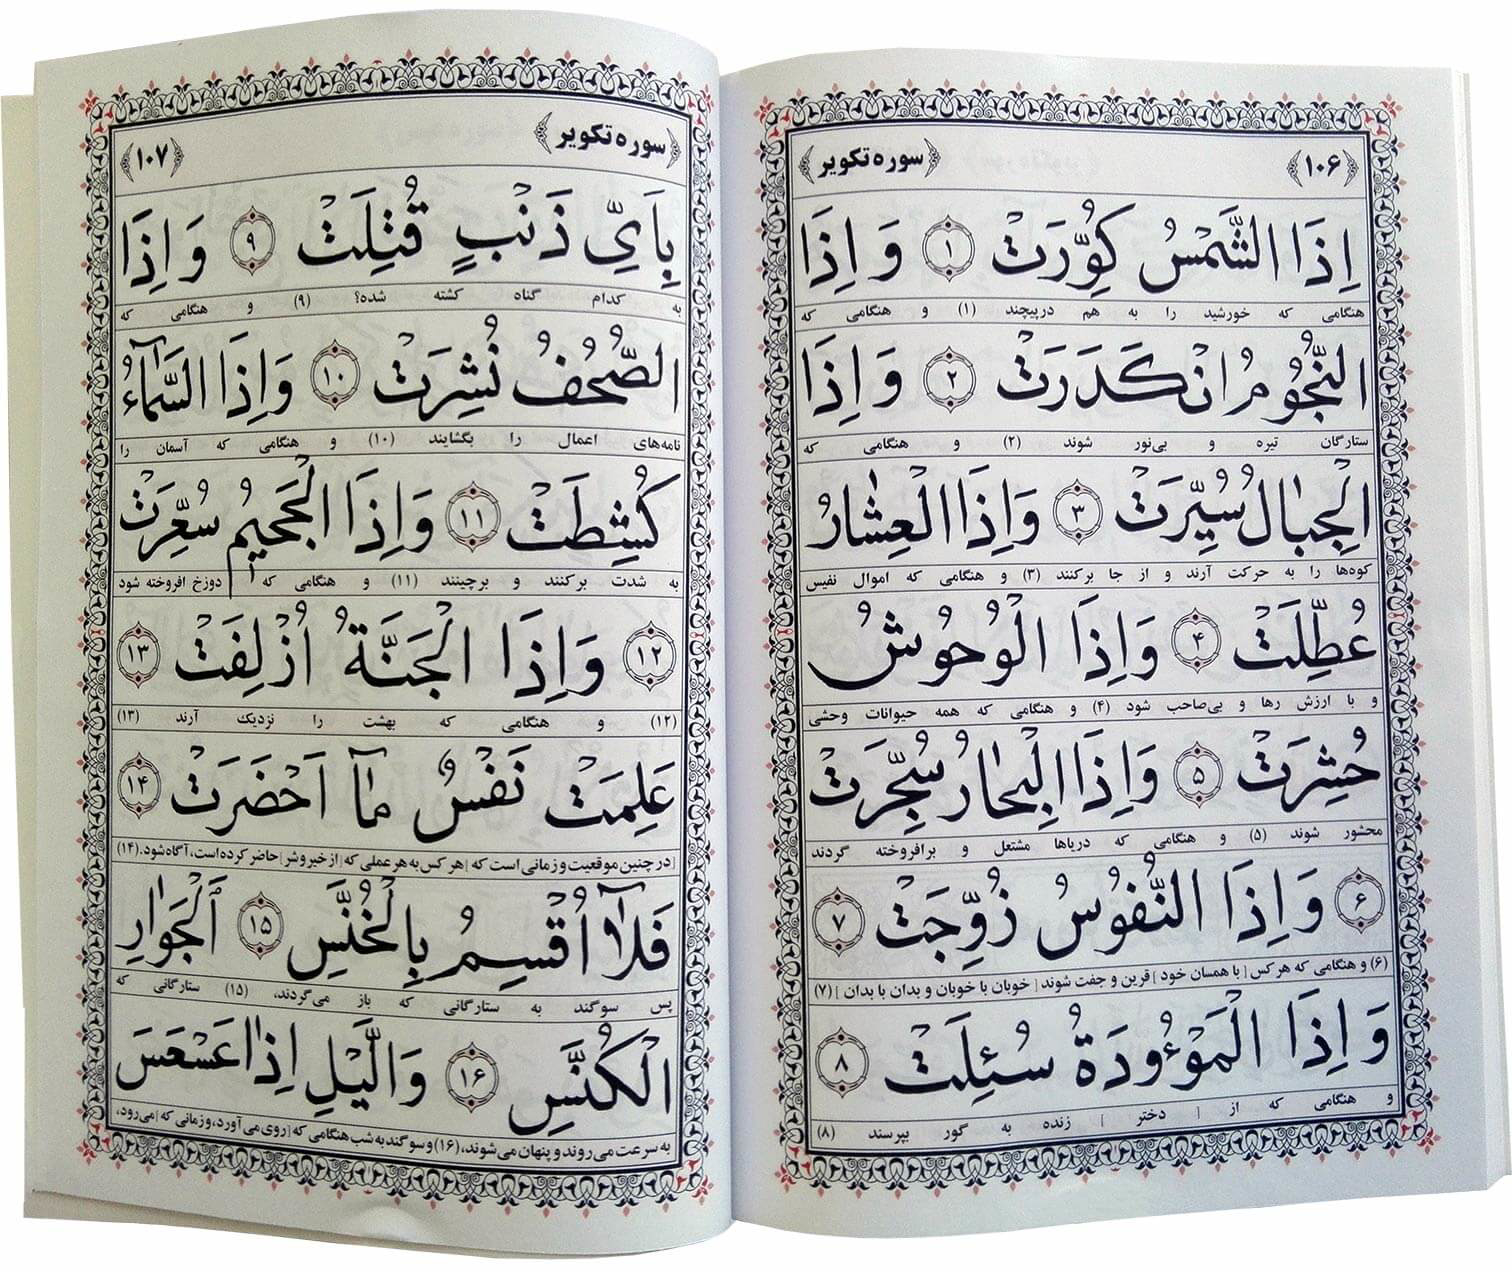 ﴿۱۰۶﴾ ﴿سوره تکویر﴾
اِذَا الشَّمْسُ كُوِّرَتْ ۱ وَ اِذَا
هنگامی که خورشید را به هم درپیچند (۱) و هنگامی که
النُّجُومُ انْكَدَرَتْ ۲ وَ اِذَا
ستارگان تیره و بی‌نور شوند (۲) و هنگامی که
الْجِبٰالُ سُيِّرَتْ ۳ وَ اِذَا الْعِشٰارُ
کوه‌ها را به حرکت آرند و از جا برکنند (۳) و هنگامی که اموال نفیس
عُطِّلَتْ ۴ وَ اِذَا الْوُحُوشُ
و با ارزش رها و بی‌صاحب شود (۴) و هنگامی که همه حیوانات وحشی
حُشِرَتْ ۵ وَ اِذَا الْبِحٰارُ سُجِّرَتْ
محشور شوند (۵) و هنگامی که دریاها مشتعل و برافروخته گردند
۶ وَ اِذَا النُّفُوسُ زُوِّجَتْ ۷
(۶) و هنگامی که هر کس [ با همسان خود ] قرین و جفت شوند [ خوبان با خوبان و بدان با بدان ] (۷)
وَ اِذَا الْمَوْؤُودَةُ سُئِلَتْ ۸
و هنگامی که از [ دختر ] زنده به گور بپرسند (۸)
﴿سوره تکویر﴾ ﴿۱۰۷﴾
بِاَيِّ ذَنْبٍ قُتِلَتْ ۹ وَ اِذَا
به کدام گناه کشته شده؟ (۹) و هنگامی که
الصُّحُفُ نُشِرَتْ ۱۰ وَ اِذَا السَّمٰآءُ
نامه‌های اعمال را بگشایند (۱۰) و هنگامی که آسمان را
كُشِطَتْ ۱۱ وَ اِذَا الْجَحيمُ سُعِّرَتْ
به شدت برکنند و برچینند (۱۱) و هنگامی که دوزخ افروخته شود
۱۲ وَ اِذَا الْجَنَّةُ اُزْلِفَتْ ۱۳
(۱۲) و هنگامی که بهشت را نزدیک آرند (۱۳)
عَلِمَتْ نَفْسٌ مٰآ اَحْضَرَتْ ۱۴
[ در چنین موقعیت و زمانی است که ] هر کس به هر عملی که [ از خیر و شر ] حاضر کرده است، آگاه شود. (۱۴)
فَلٰآ اُقْسِمُ بِالْخُنَّسِ ۱۵ اَلْجَوٰارِ
پس سوگند به ستارگانی که باز می‌گردند، (۱۵) ستارگانی که
الْكُنَّسِ ۱۶ وَ الَّيْلِ اِذٰا عَسْعَسَ
به سرعت می‌روند و پنهان می‌شوند، (۱۶) و سوگند به شب هنگامی که [ روی می‌آورد، و زمانی که ] می‌رود،